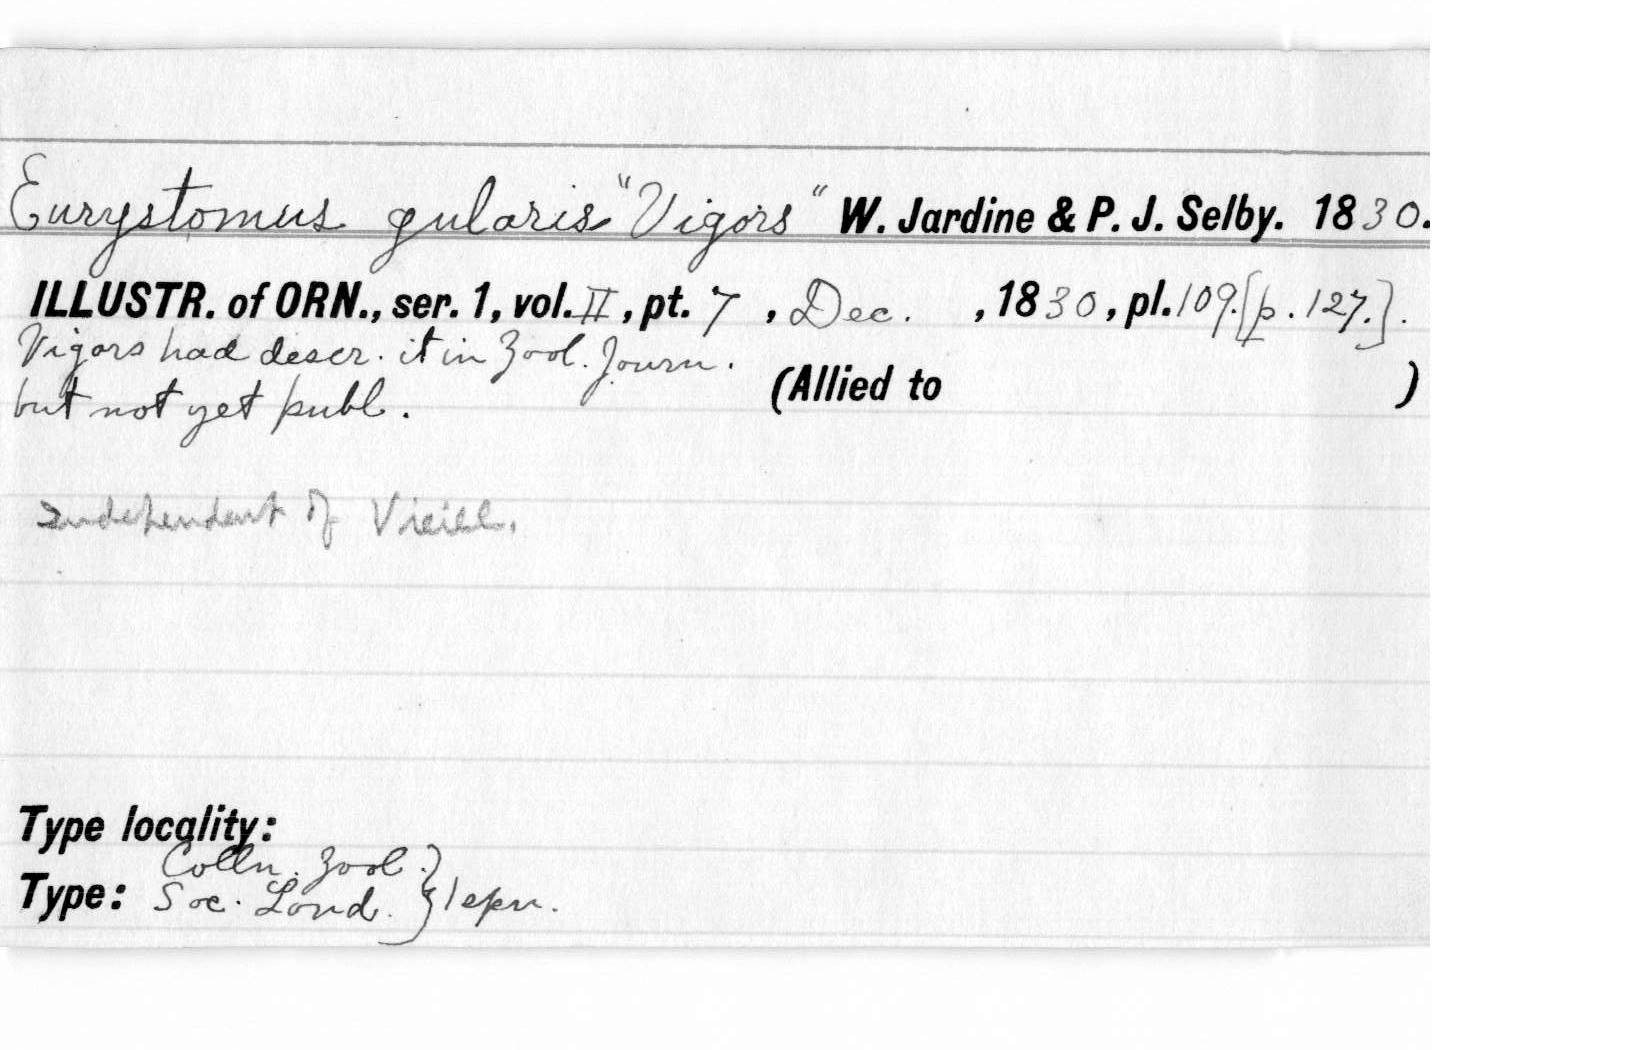 Eurystomus gularis "Vigors" W. Jardine & P. J. Selby. 1830.
ILLUSTR. of ORN., ser. 1, vol. II, pt. 7, Dec. , 1830, pl. 109. [p. 127.].
Vigors had descr. it in Zool. Journ.
but not yet publ.
(Allied to )
Independent of Vieill.
Type locality:
Colln. Zool.
Type: Soc. Lond. } 1 spn.